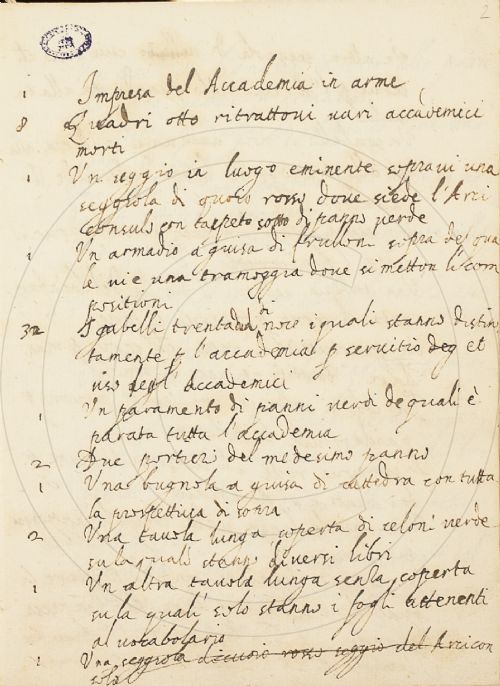 2
1 Impresa del Accademia in arme
8 Quadri otto ritrattovi vari accademici
morti
1 Un seggio in luogo eminente sopravi una
seggiola di quoio rosso dove siede l'Arci
consulo con tappeto sotto di panno verde
1 Un armadio a guisa di frulloni sopra del qua
le vi e una tramoggia dove si metton li com
positioni
32 Sgabelli trentadua di noce i quali stanno distin
tamente p l'accademia p servitio deg et
uso degl' Accademici
1 Un paramento di panni verdi de quali è
parata tutta l'accademia
2 Due portiere del medesimo panno
1 Una bugnola a guisa di cattedra con tutta
la prospettiva di sopra
2 Una tavola lunga coperta di celoni verde
su la quale stanno diversi libri
1 Un altra tavola lunga senza coperta
su la quali solo stanno i fogli attenenti
al vocabolario
1 Una seggiola di cuoio rosso seggio del Arcicon
solo